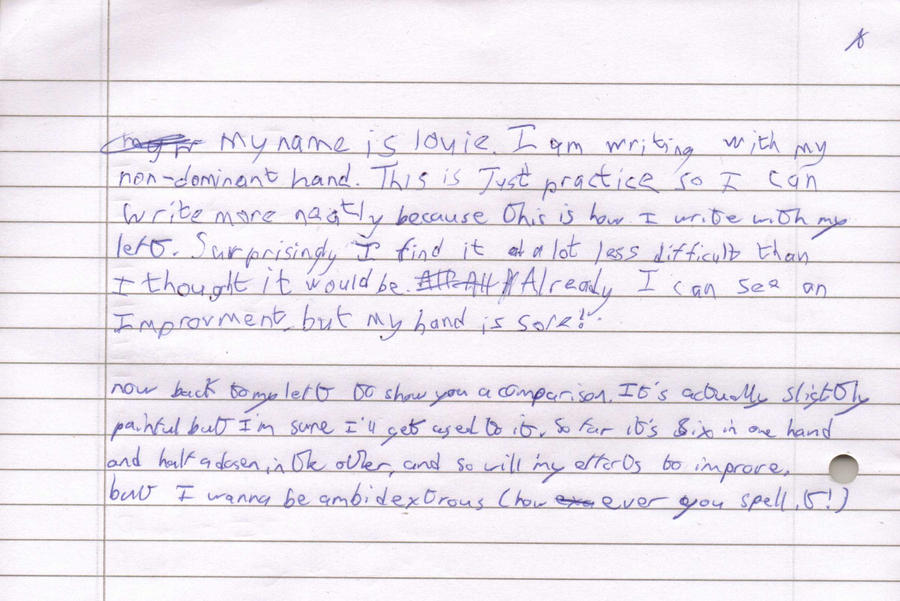 My name is louie. I am writing with my
non-dominant hand. This is Just practice so I can
write more neatly because this is how I write with my
left. Surprisingly I find it a lot less difficult than
I thought it would be. Already I can see an
Improvment, but my hand is sore!
now back to my left to show you a comparison. It's actually slightly
painful but I'm sure I'll get used to it. So far it's six in one hand
and half a dosen in the other, and so will my efforts to improve.
but I wanna be ambidextrous (how ever you spell it!)